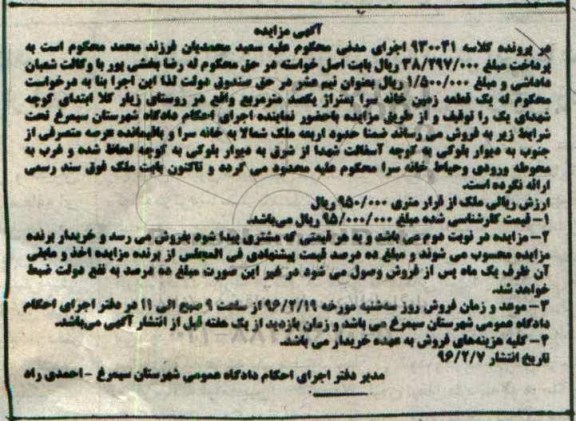 آگهی مزایده
در پرونده کلاسه ۹۳۰۰۳۱ اجرای مدنی محکوم علیه سعید محمدیان فرزند محمد محکوم است به
پرداخت مبلغ ۳۸/۲۹۷/۰۰۰ ریال بابت اصل خواسته در حق محکوم له رضا بخشی پور با وکالت شعبان
داداشی و مبلغ ۱/۵۰۰/۰۰۰ ریال بعنوان نیم عشر در حق صندوق دولت لذا این اجرا بنا به درخواست
محکوم له یک قطعه زمین خانه سرا بمتراژ یکصد مترمربع واقع در روستای زیار کلا ابتدای کوچه
شهدای یک را توقیف و از طریق مزایده باحضور نماینده اجرای احکام دادگاه شهرستان سیمرغ تحت
شرایط زیر به فروش می رساند ضمنا حدود اربعه ملک شمالا به خانه سرا و باقیمانده عرصه متصرفی از
جنوب به دیوار بلوکی به کوچه آسفالت شهدا از شرق به دیوار بلوکی به کوچه لحاظ شده و غرب به
محوطه ورودی وحیاط خانه سرا محکوم علیه محدود می گردد و تاکنون بابت ملک فوق سند رسمی
ارائه نگرده است.
ارزش ریالی ملک از قرار متری ۹۵۰/۰۰۰ ریال
۱- قیمت کارشناسی شده مبلغ ۹۵/۰۰۰/۰۰۰ ریال می‌باشد.
۲- مزایده در نوبت دوم می باشد و به هر قیمتی که مشتری پیدا شود بفروش می رسد و خریدار برنده
مزایده محسوب می شوند و مبلغ ده درصد قیمت پیشنهادی فی المجلس از برنده مزایده اخذ و مابقی
آن ظرف یک ماه پس از فروش وصول می شود در غیر این صورت مبلغ ده درصد به نفع دولت ضبط
خواهد شد.
۳- موعد و زمان فروش روز سه‌شنبه مورخه ۹۶/۲/۱۹ از ساعت ۹ صبح الی ۱۱ در دفتر اجرای احکام
دادگاه عمومی شهرستان سیمرغ می باشد و زمان بازدید از یک هفته قبل از انتشار آگهی می‌باشد.
۴- کلیه هزینه‌های فروش به عهده خریدار می باشد.
تاریخ انتشار ۹۶/۲/۷
مدیر دفتر اجرای احکام دادگاه عمومی شهرستان سیمرغ - احمدی راد